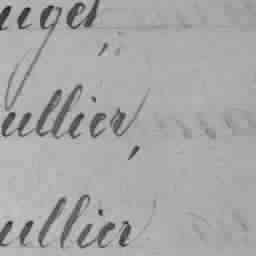 uget
ullier,
ullier